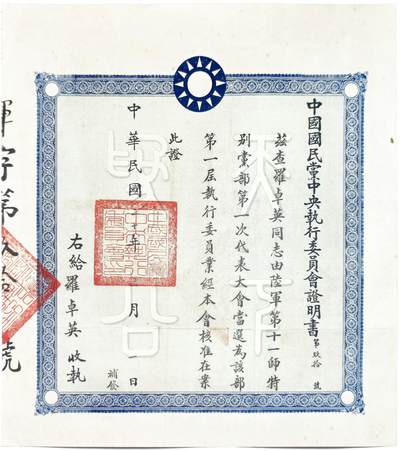 中國國民黨中央執行委員會證明書
第玖拾號
茲查羅卓英同志由陸軍第十一師特
別黨部第一次代表大會當選為該部
第一屆執行委員業經本會核准在案
此證
中華民國十年月一日
補發
右給羅卓英收執
字第玖拾號